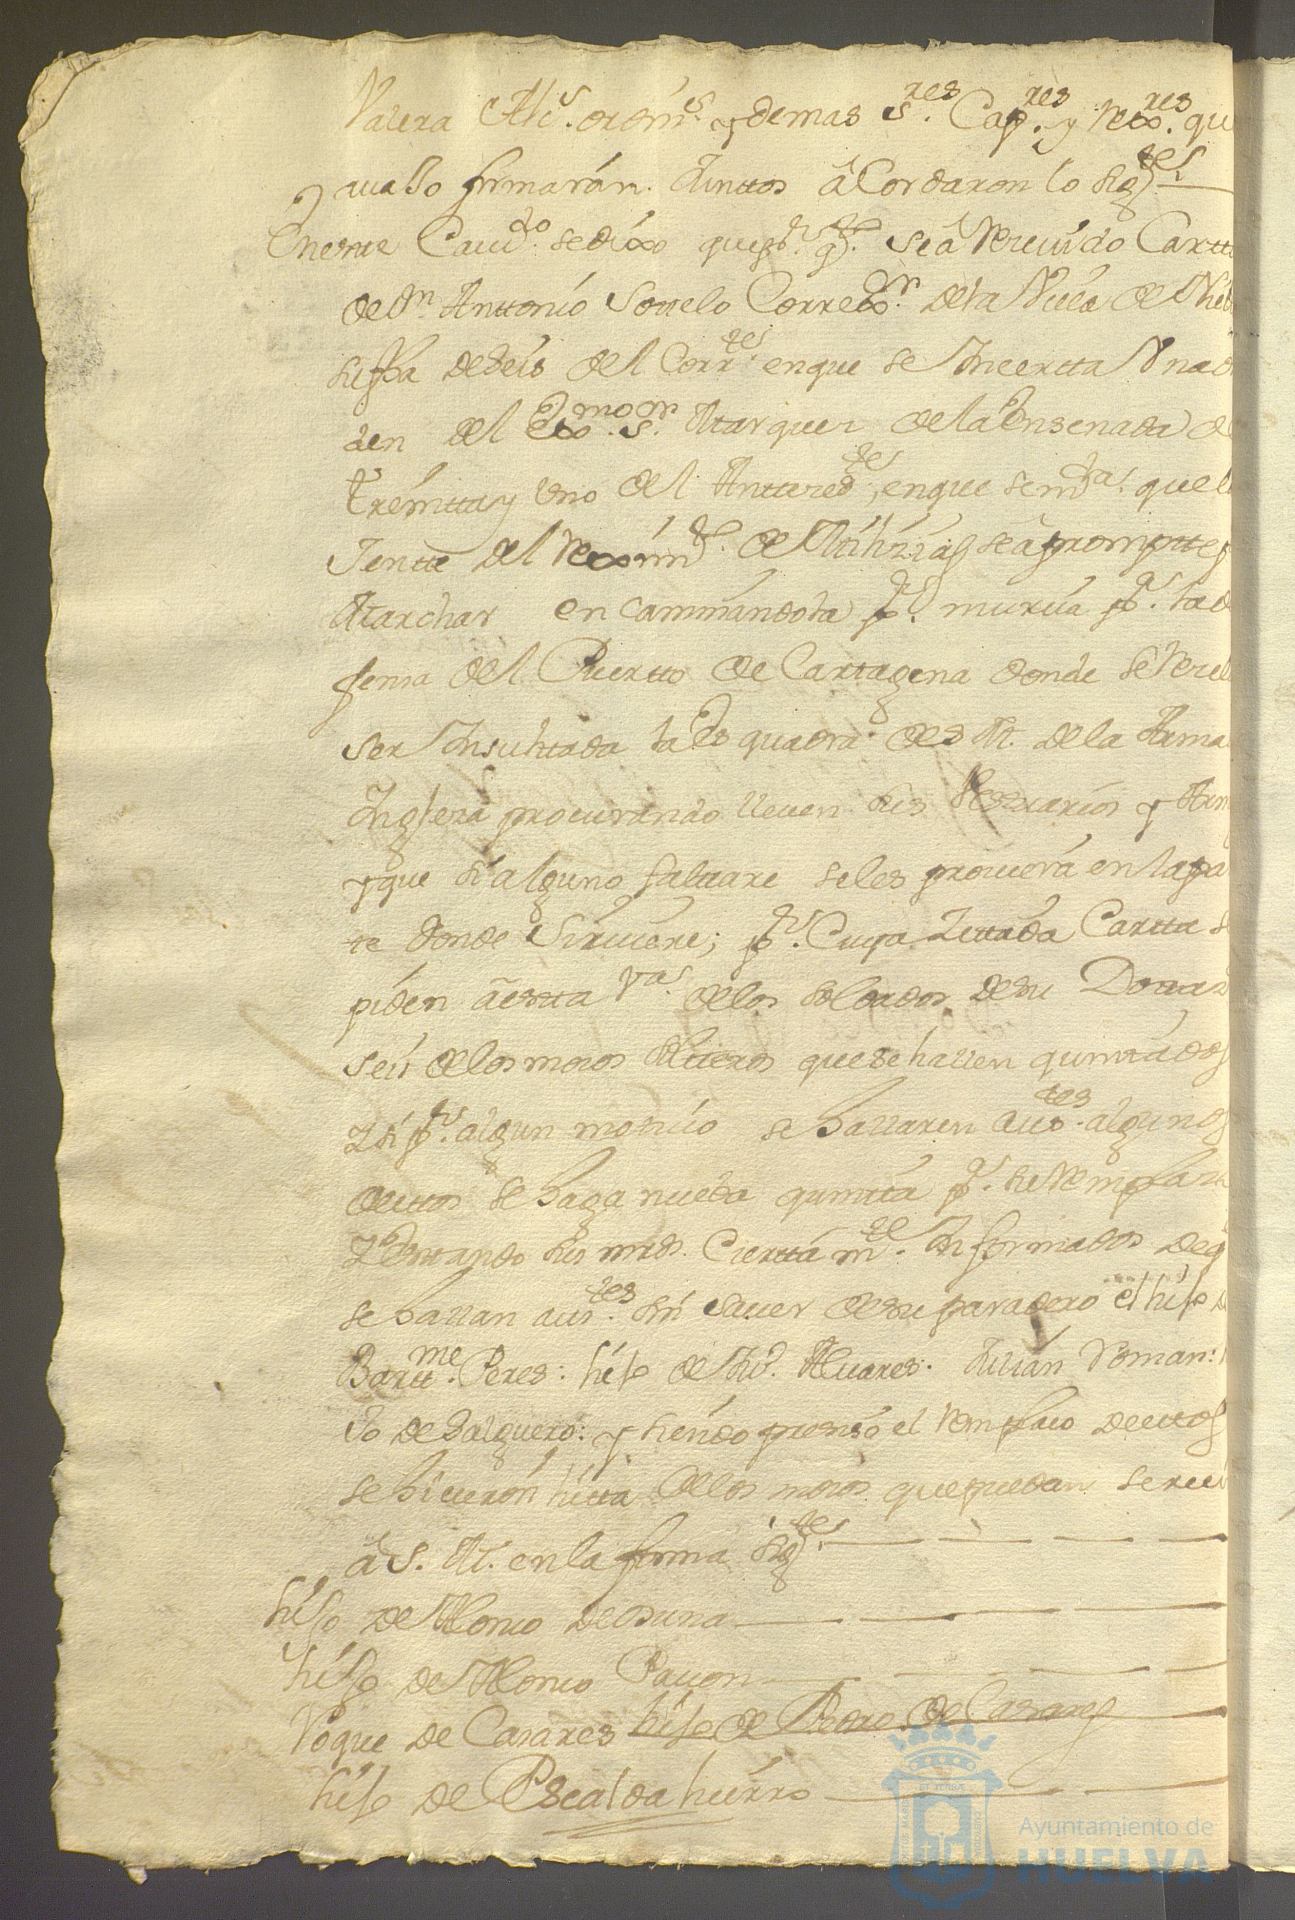 Valera Alc.s ordin.s y demas S.res Cap.res y Rex.res qu
avaxo firmarán. Juntos â Cordaron lo sig.tes
En este Cav.do se dixo que p.r q.to se â Recivido Cartta
de D.n Anttonio Sottelo Correx.or de la Villa de Nieb
su fha de seis del Corr.te en que se Incertta Una or
den del Ex.mo S.or Marques de la Ensenada de
treintta y uno del Anttesed.te en que se m.da que la
Jente del Reximi.to de Milizias se âprompte p
Marchar en camminandola p.r murcia p.a la de
fensa del Puertto de Cartagena donde se Rece
ser Insultada la Esquadra de S. M. de la Arma
Inglesa procurando lleven sus Vestuarios y Arm
y que si alguno faltare se les proveerá en la par
te donde Sirviere; p.r Cuya Zittada Cartta se
piden a estta V.a de los soldados de su Dottaz
seis de los mosos solteros que se hallen quinttados
Y si p.r algun motivo se hallaren aus.tes algunos
de ettos se haga nueba quintta p.a su Remplazo
Y Esttando sus mrds. Ciertta m.te Informados de q
se hallan aus.tes sin saver de su paradero el hijo d
Bartt.me Peres: hijo de Ju.o Alvares. Julián Roman:
jo de Salguero: y siendo preciso el Remplaso de ettos
se hicieron listta de los mosos que puedan servi
â S. M. en la forma sig.te
hijo de Alonso de Osuna
hijo de Alonso Pavon
Roque de Casares hijo de Pedro de Casares
hijo de Escaldahierro
Ayuntamiento de
HUELVA